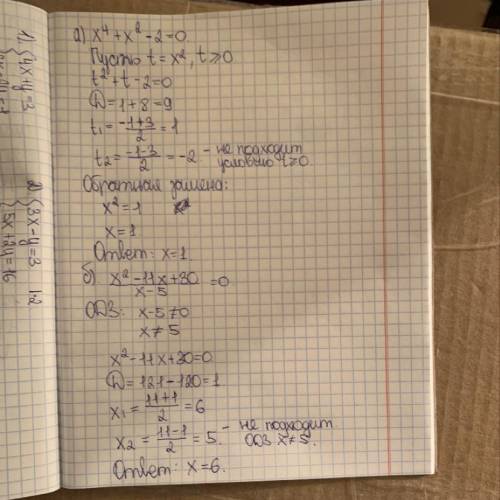 а) x⁴+x²-2=0
Пусть t=x², t≥0
t²+t-2=0
D=1+8=9
t₁=(-1+3)/2=1
t₂=(-1-3)/2=-2 - не подходит
условию t≥0.
Обратная замена:
x²=1
x=1
Ответ: x=1
б) (x²-11x+30)/(x-5)=0
ОДЗ: x-5≠0
x≠5
x²-11x+30=0
D=121-120=1
x₁=(11+1)/2=6
x₂=(11-1)/2=5. - не подходит
ОДЗ x≠5.
Ответ: x=6.
1) {4x+y=3
2) {3x-y=3 |·2
{5x+2y=16